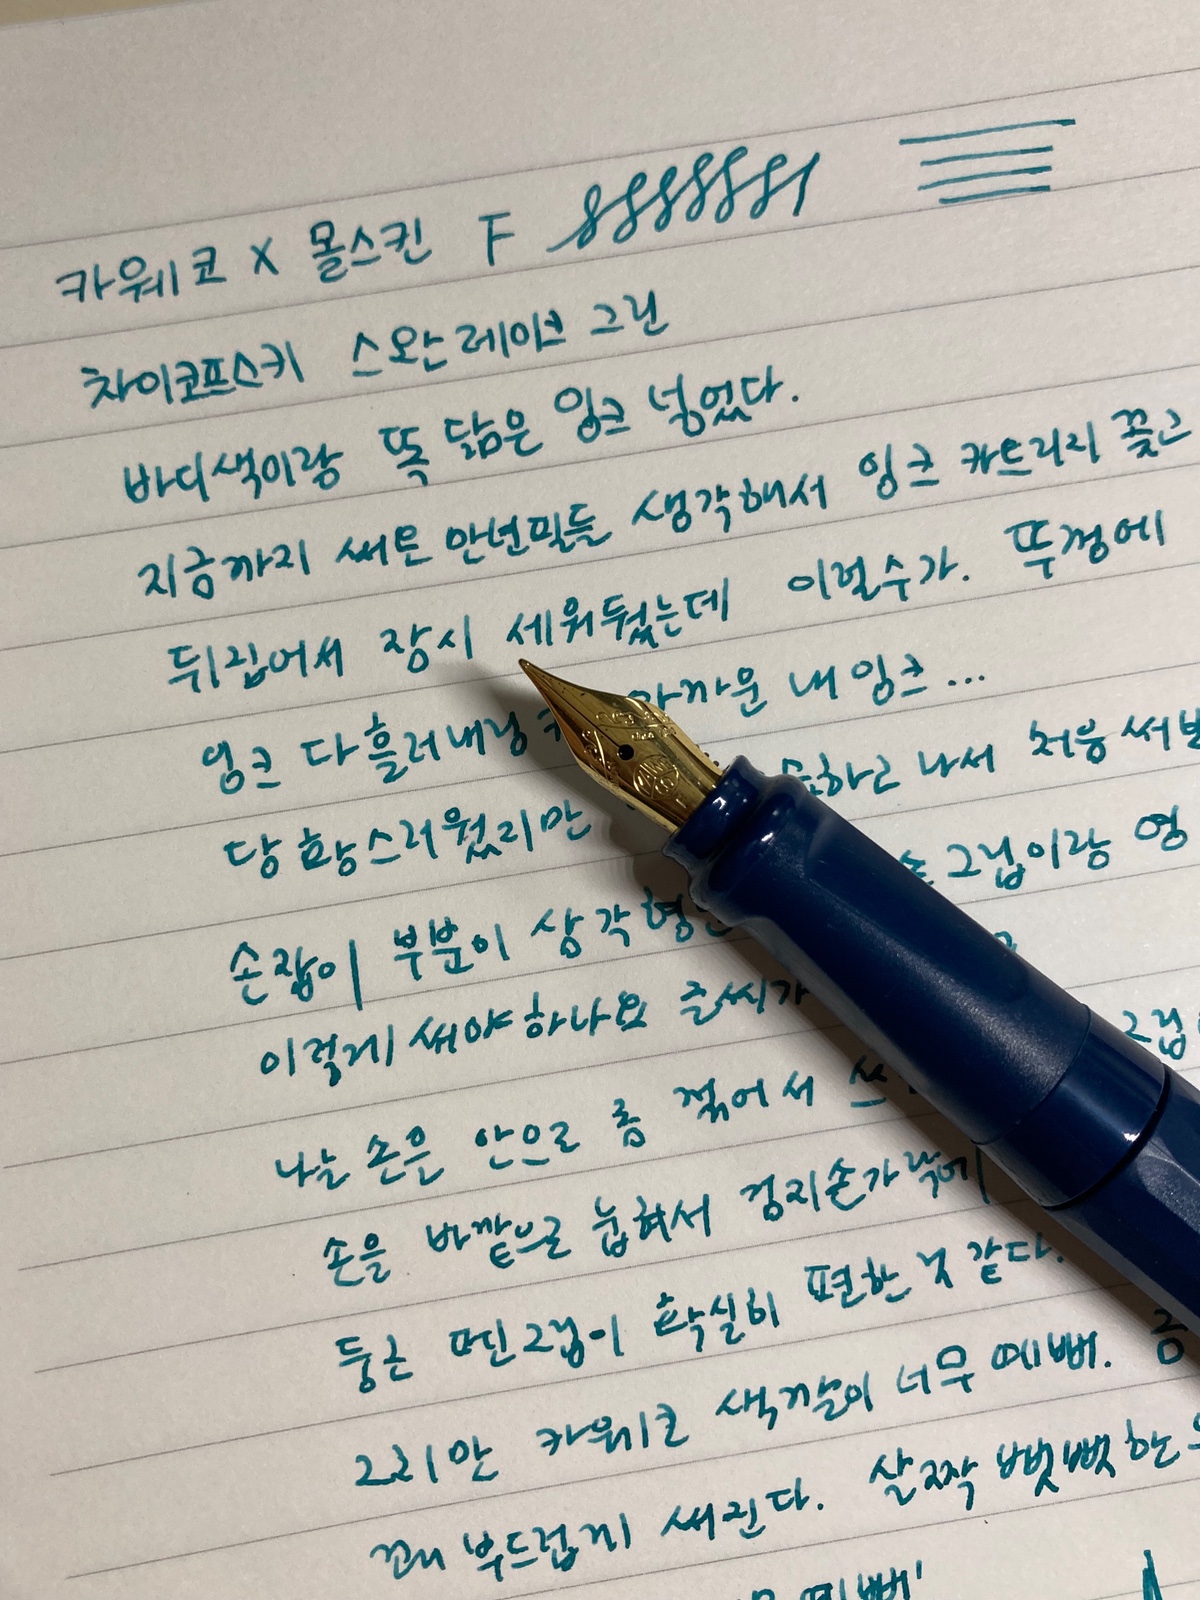 카웨코 X 몰스킨 F
차이코프스키 스완레이크 그린
바디색이랑 똑 닮은 잉크 넣었다.
지금까지 써온 만년필들 생각해서 잉크 카트리지 꽂고
뒤집어서 잠시 세워뒀는데 이럴수가. 뚜껑에
잉크 다 흘러내렸 아까운 내 잉크...
당황스러웠지만 하고 나서 처음 써
손잡이 부분이 삼각형 그립이랑 영
이렇게 써야하나요 글씨가
나는 손은 안으로 좀 꺾어서 그립
손을 바깥으로 눕혀서 검지손가락에
둥근 펜그립이 확실히 편한 것 같다.
그치만 카웨코 색깔이 너무 예뻐.
꽤 부드럽게 써진다. 살짝 뻣뻣한